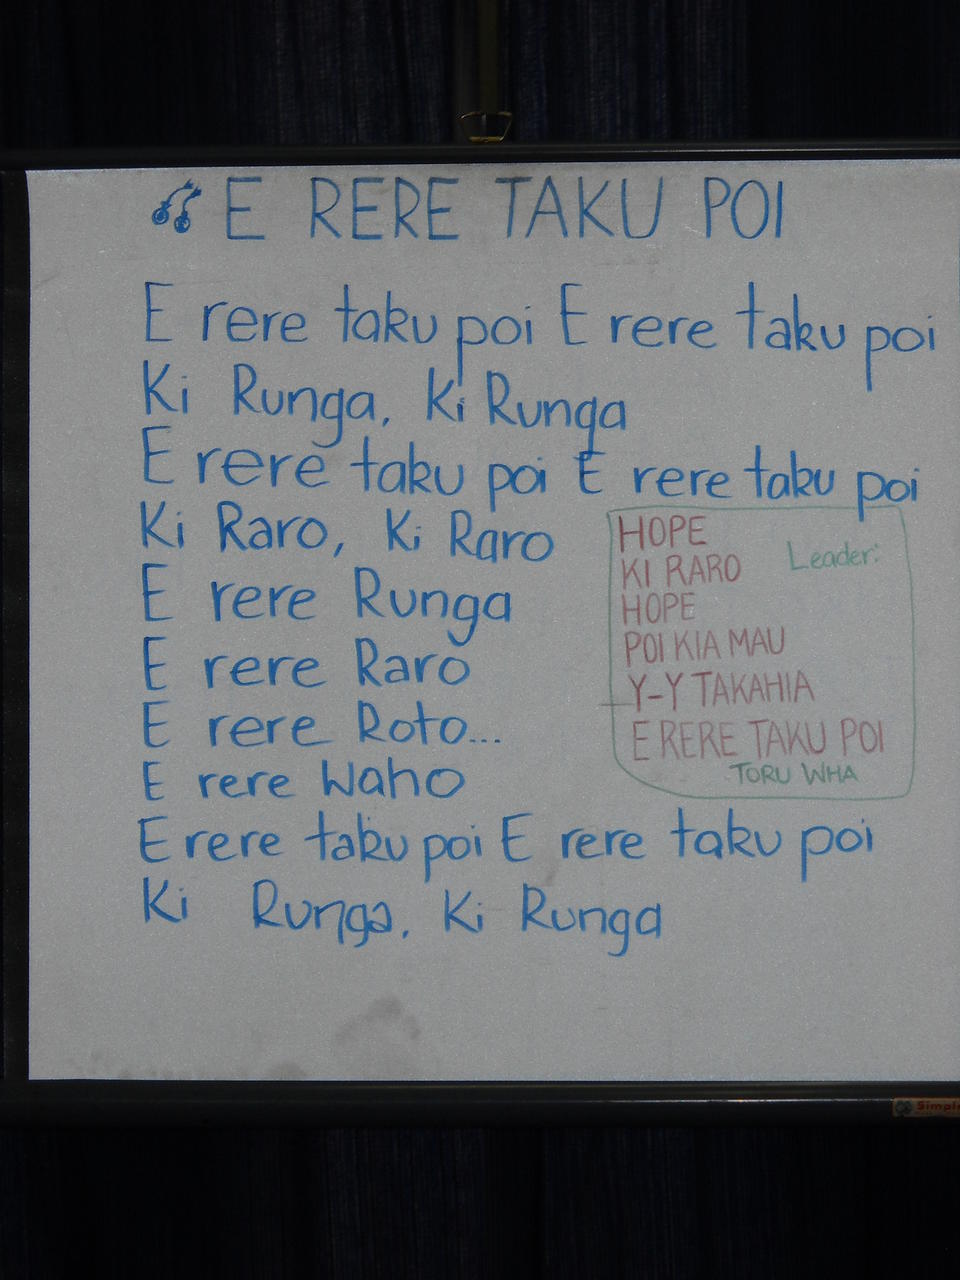 E RERE TAKU POI
E rere taku poi E rere taku poi
Ki Runga, Ki Runga
E rere taku poi E rere taku poi
Ki Raro, Ki Raro
E rere Runga
E rere Raro
E rere Roto...
E rere Waho
E rere taku poi E rere taku poi
Ki Runga, Ki Runga
Leader:
HOPE
KI RARO
HOPE
POI KIA MAU
Y-Y TAKAHIA
E RERE TAKU POI
TORU WHA